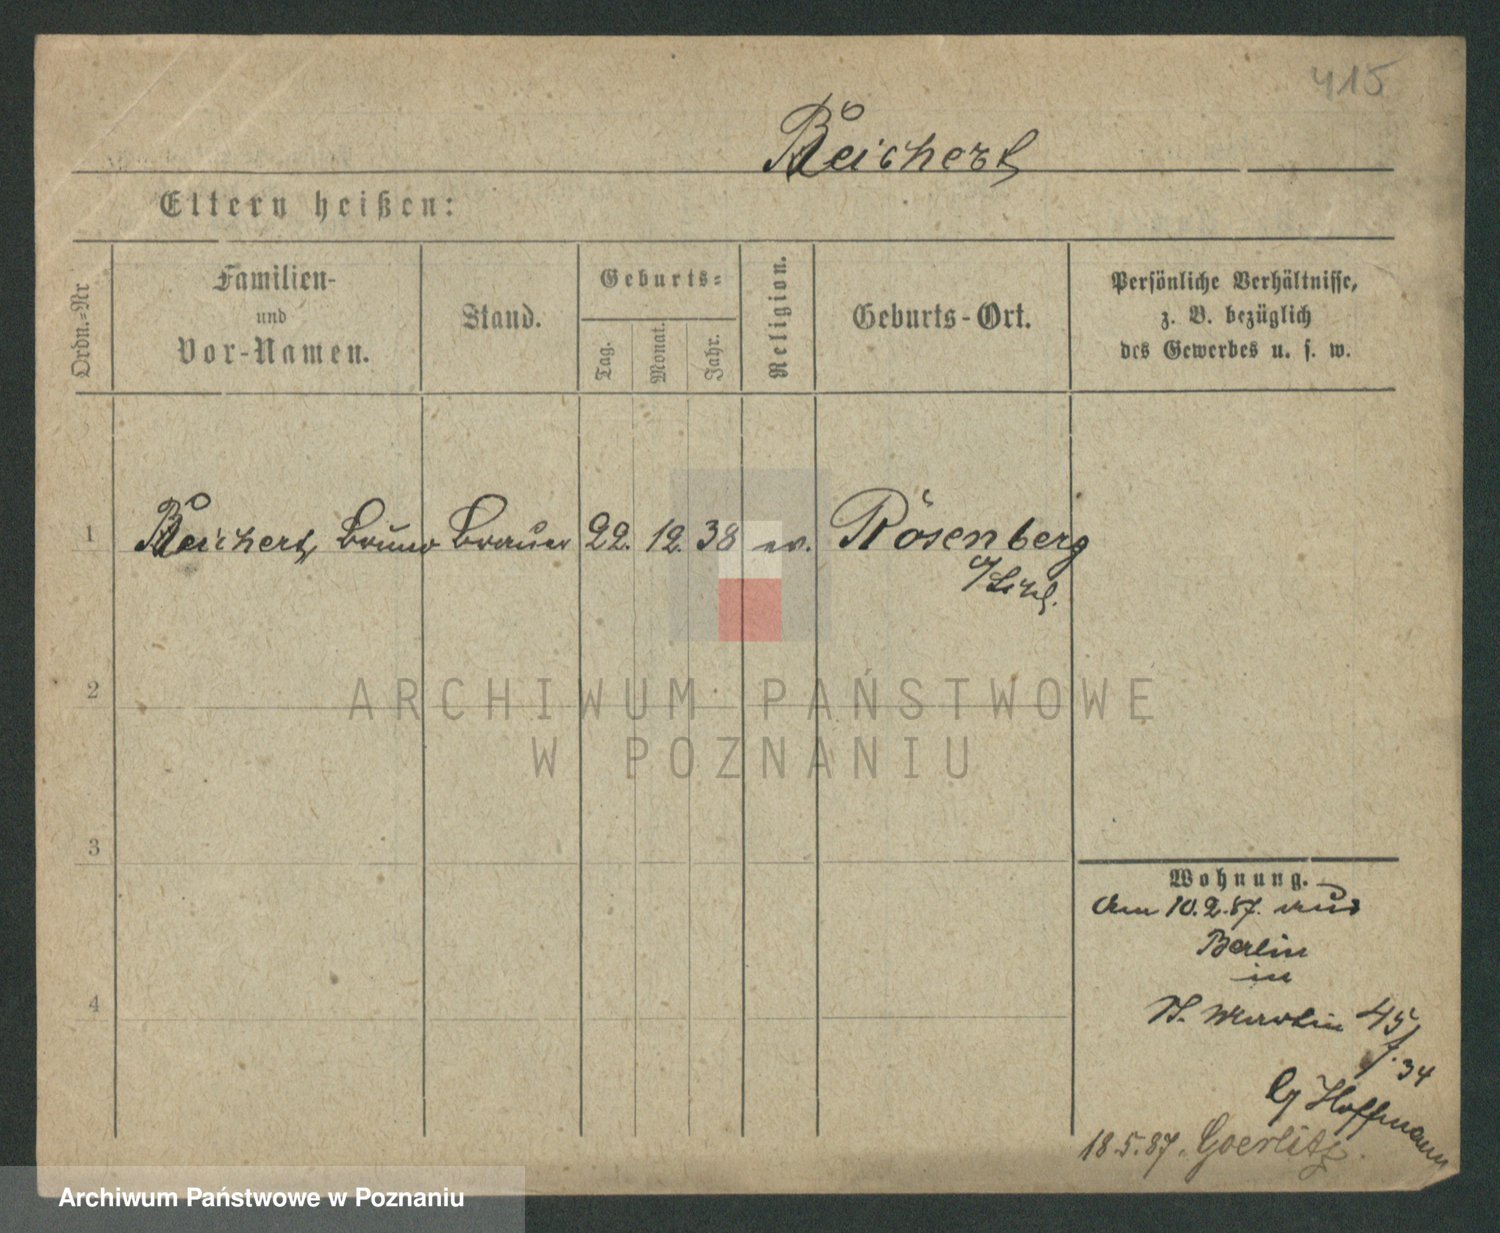 415
Reichert
Eltern heißen:
Ordn.-Nr
Familien-
und
Vor-Namen.
Stand.
Geburts-
Tag.
Monat.
Jahr.
Religion.
Geburts-Ort.
Persönliche Verhältnisse,
z. B. bezüglich
des Gewerbes u. s. w.
1 Reichert, Bruno Brauer 22. 12. 38 ev. Rosenberg
2
3
4
Wohnung.
Am 10.2.87. aus
Berlin
in
St. Martin 45
f. 34
Hoffmann
18.5.87. Goerlitz.
ARCHIWUM PAŃSTWOWE
W POZNANIU
Archiwum Państwowe w Poznaniu